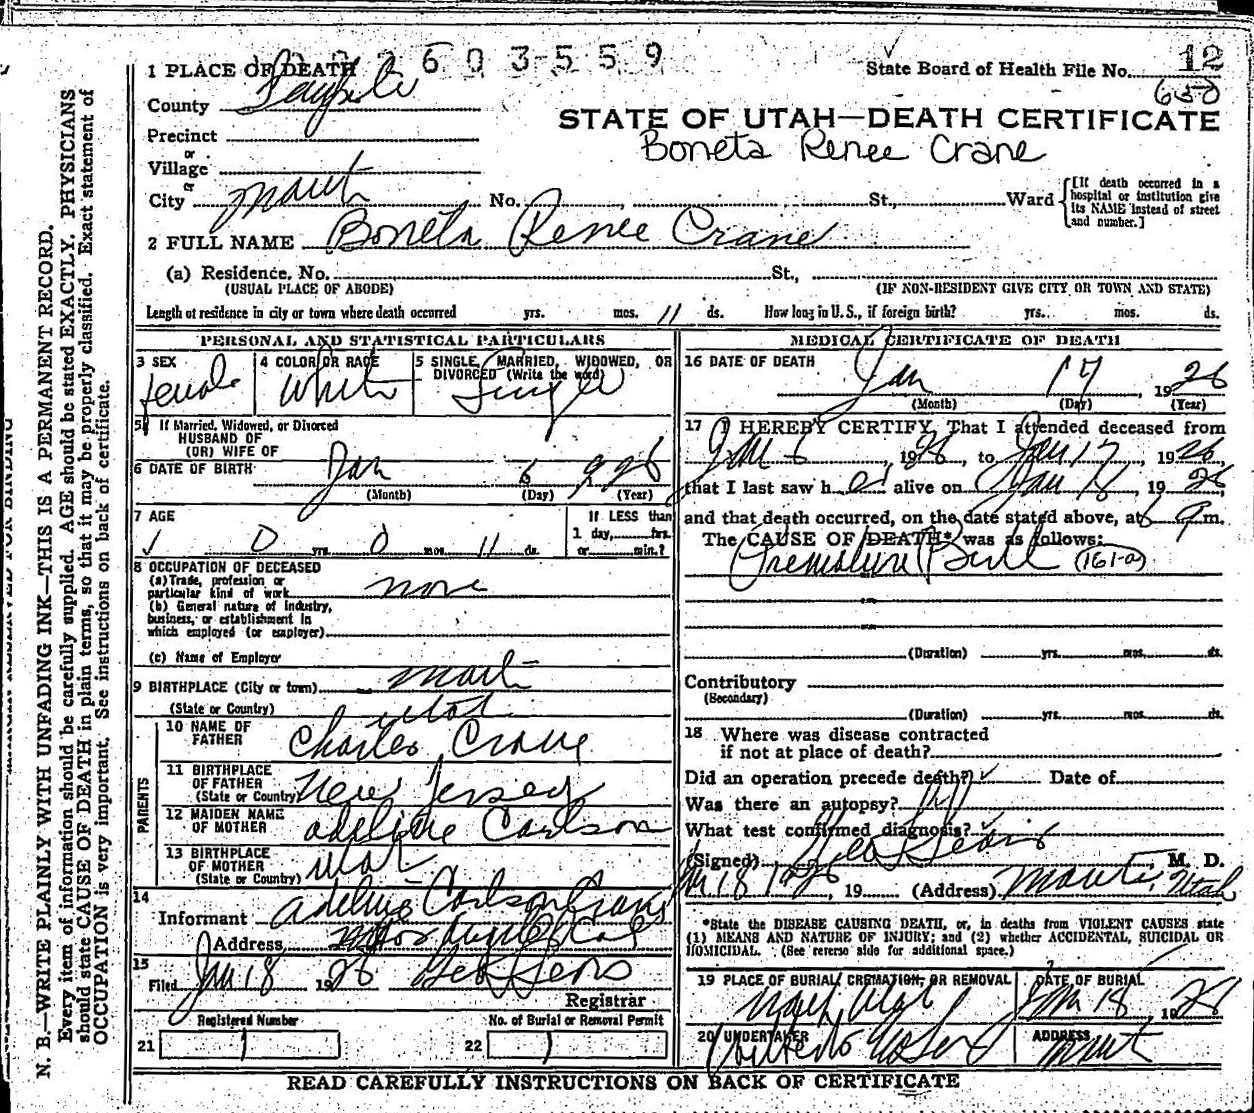 2603559
State Board of Health File No. 12
650
1 PLACE OF DEATH
County
Precinct
or
Village
or
City Manti No. St., Ward
[If death occurred in a hospital or institution give its NAME instead of street and number.]
STATE OF UTAH—DEATH CERTIFICATE
Boneta Renee Crane
2 FULL NAME Boneta Renee Crane
(a) Residence. No. St.,
(USUAL PLACE OF ABODE) (IF NON-RESIDENT GIVE CITY OR TOWN AND STATE)
Length of residence in city or town where death occurred yrs. mos. 11 ds. How long in U.S., if foreign birth? yrs. mos. ds.
PERSONAL AND STATISTICAL PARTICULARS
3 SEX female
4 COLOR OR RACE White
5 SINGLE, MARRIED, WIDOWED, OR DIVORCED (Write the word) Single
5a If Married, Widowed, or Divorced
HUSBAND OF
(OR) WIFE OF
6 DATE OF BIRTH Jan 6 926
(Month) (Day) (Year)
7 AGE 0 yrs. 0 mos. 11 ds.
If LESS than 1 day, hrs. or min.?
8 OCCUPATION OF DECEASED
(a) Trade, profession or particular kind of work none
(b) General nature of industry, business, or establishment in which employed (or employer)
(c) Name of Employer
9 BIRTHPLACE (City or town) Manti
(State or Country) Utah
PARENTS
10 NAME OF FATHER Charles Crane
11 BIRTHPLACE OF FATHER (State or Country) New Jersey
12 MAIDEN NAME OF MOTHER Adeline Carlson
13 BIRTHPLACE OF MOTHER (State or Country) Utah
14
Informant Adeline Carlson Crane
Address
15
Filed Jan 18 1926 Geo Sears
Registrar
Registered Number
21 1
No. of Burial or Removal Permit
22 1
MEDICAL CERTIFICATE OF DEATH
16 DATE OF DEATH Jan 17 1926
(Month) (Day) (Year)
17 I HEREBY CERTIFY, That I attended deceased from
Jan 6, 1926, to Jan 17, 1926,
that I last saw h er alive on Jan 18, 1926,
and that death occurred, on the date stated above, at 6 P m.
The CAUSE OF DEATH* was as follows:
Premature Birth (161-a)
(Duration) yrs. mos. ds.
Contributory
(Secondary)
(Duration) yrs. mos. ds.
18 Where was disease contracted
if not at place of death?
Did an operation precede death? Date of
Was there an autopsy?
What test confirmed diagnosis?
(Signed) Geo Sears, M. D.
Jan 18 1926, 19 (Address) Manti, Utah
*State the DISEASE CAUSING DEATH, or, in deaths from VIOLENT CAUSES state
(1) MEANS AND NATURE OF INJURY; and (2) whether ACCIDENTAL, SUICIDAL OR
HOMICIDAL. (See reverse side for additional space.)
19 PLACE OF BURIAL, CREMATION, OR REMOVAL
Utah
DATE OF BURIAL
Jan 18, 1926
20 UNDERTAKER
ADDRESS
Manti
READ CAREFULLY INSTRUCTIONS ON BACK OF CERTIFICATE
MARGIN RESERVED FOR BINDING
N. B.—WRITE PLAINLY WITH UNFADING INK—THIS IS A PERMANENT RECORD.
Every item of information should be carefully supplied. AGE should be stated EXACTLY. PHYSICIANS
should state CAUSE OF DEATH in plain terms, so that it may be properly classified. Exact statement of
OCCUPATION is very important. See instructions on back of certificate.